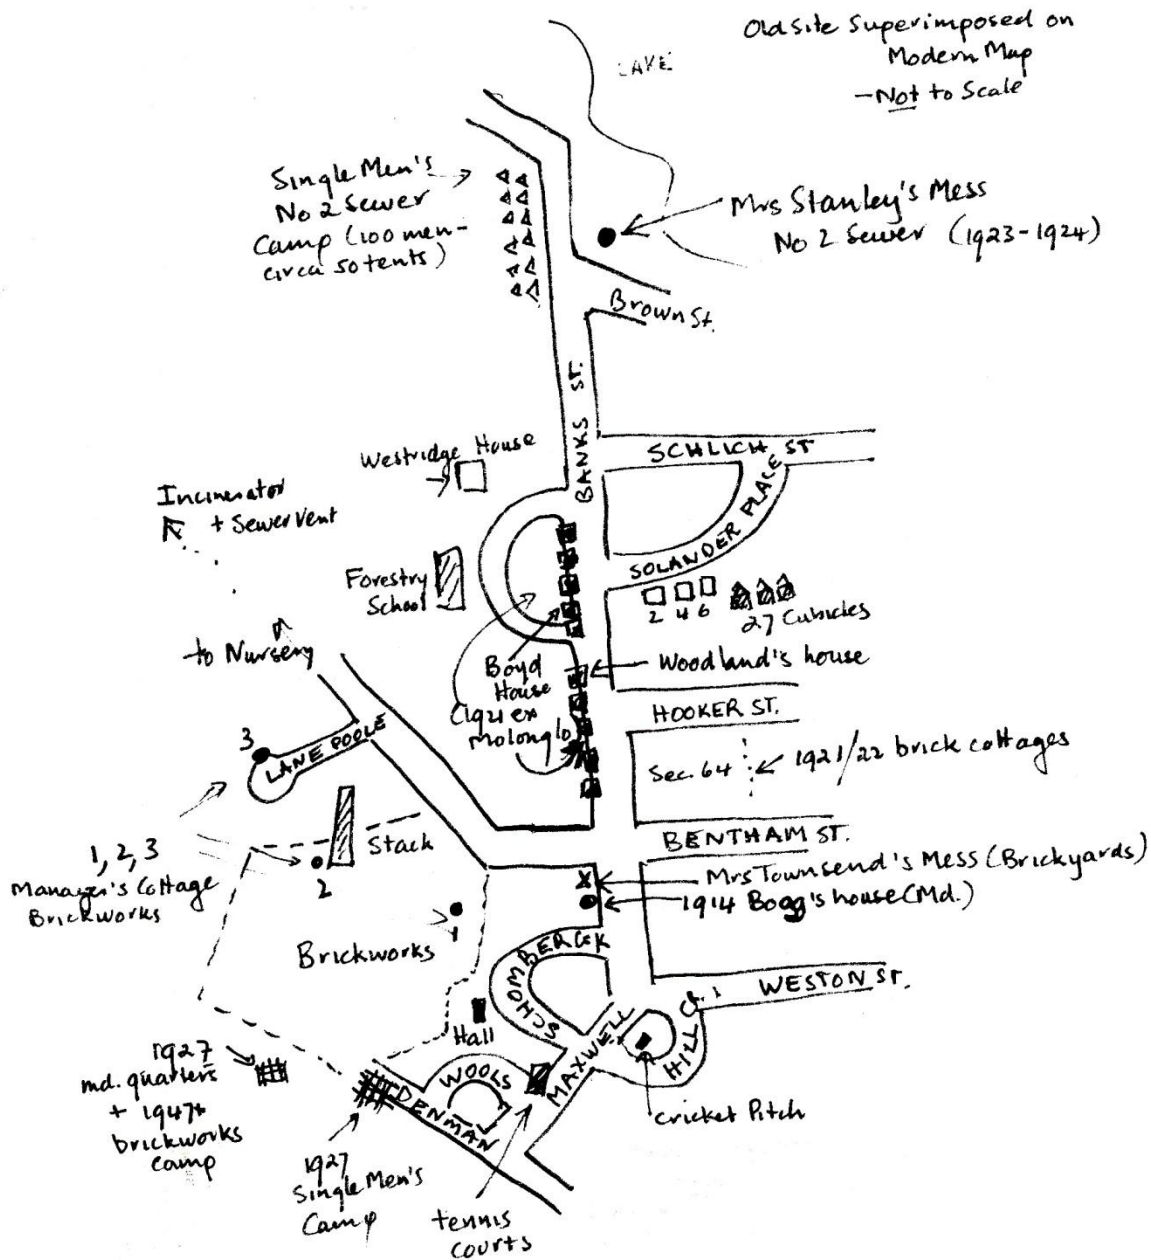 Old Site Superimposed on
Modern Map
- Not to Scale
LAKE
Single Men's
No 2 Sewer
Camp (100 men -
circa 50 tents)
Mrs Stanley's Mess
No 2 Sewer (1923-1924)
Brown St.
BANKS ST.
Westridge House
SCHLICH ST
SOLANDER PLACE
Incinerator
+ Sewer Vent
Forestry
School
2 4 6
27 Cubicles
to Nursery
Boyd
House
(1921 ex
Molonglo)
Woodland's house
HOOKER ST.
3
LANE POOLE
Sec. 64
1921/22 brick cottages
BENTHAM ST.
Stack
1, 2, 3
Manager's Cottage
Brickworks
2
Mrs Townsend's Mess (Brickyards)
1914 Bogg's house (Md.)
1
Brickworks
SCHOMBERGK
WESTON ST.
Hall
MAXWELL
HILL CR.
1927
md. quarters
+ 1947+
brickworks
camp
WOOLS
DENMAN
Cricket Pitch
1927
Single Men's
Camp
tennis
courts